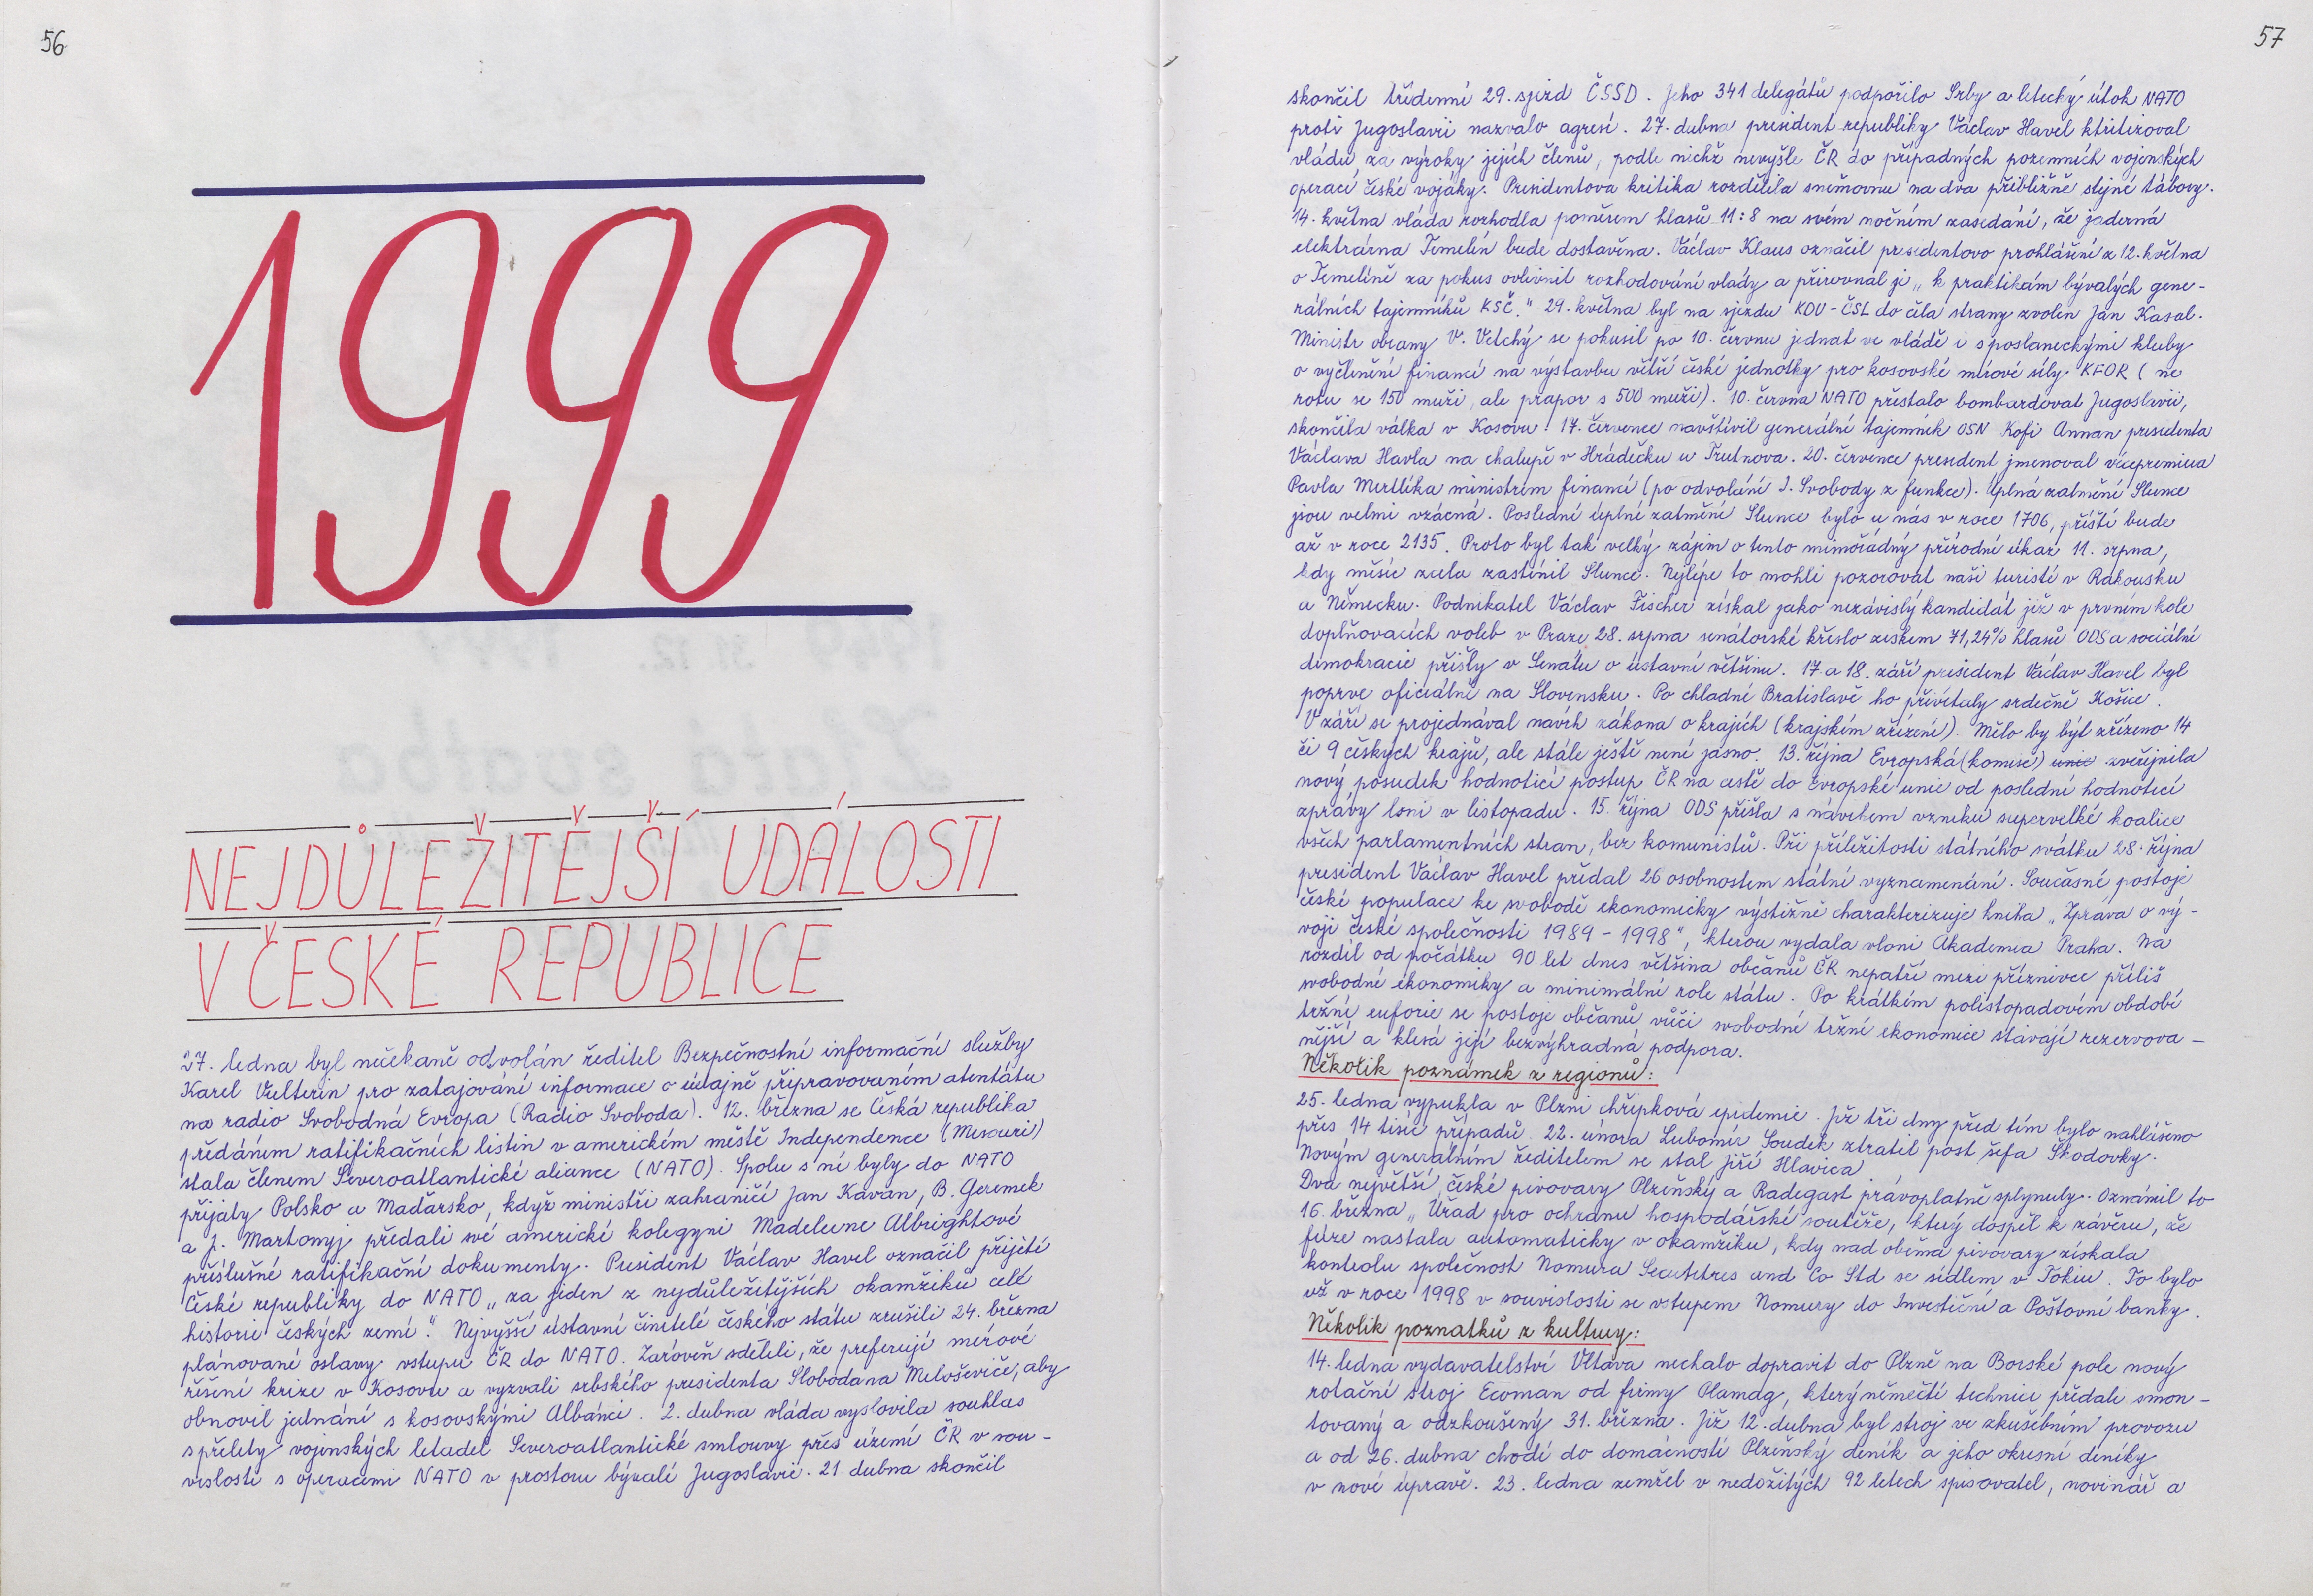 56
1999
NEJDŮLEŽITĚJŠÍ UDÁLOSTI
V ČESKÉ REPUBLICE
27. ledna byl nečekaně odvolán ředitel Bezpečnostní informační služby
Karel Vulterin pro zatajování informace o údajně připravovaném atentátu
na radio Svobodná Evropa (Radio Svoboda). 12. března se Česká republika
předáním ratifikačních listin v americkém městě Independence (Missouri)
stala členem Severoatlantické aliance (NATO). Spolu s ní byly do NATO
přijaty Polsko a Maďarsko, když ministři zahraničí Jan Kavan, B. Geremek
a J. Martonyj předali své americké kolegyni Madeleine Albrightové
příslušné ratifikační dokumenty. President Václav Havel označil přijetí
České republiky do NATO „za jeden z nejdůležitějších okamžiků celé
historie českých zemí." Nejvyšší ústavní činitelé českého státu zrušili 24. března
plánované oslavy vstupu ČR do NATO. Zároveň sdělili, že preferují mírové
řešení krize v Kosovu a vyzvali srbského presidenta Slobodana Miloševiče, aby
obnovil jednání s kosovskými Albánci. 2. dubna vláda vyslovila souhlas
s přelety vojenských letadel Severoatlantické smlouvy přes území ČR v sou-
vislosti s operacemi NATO v prostoru bývalé Jugoslavie. 21. dubna skončil
57
skončil třídenní 29. sjezd ČSSD. Jeho 341 delegátů podpořilo Srby a letecký útok NATO
proti Jugoslavii nazvalo agresí. 27. dubna president republiky Václav Havel ktritizoval
vládu za výroky jejích členů, podle nichž nevyšle ČR do případných pozemních vojenských
operací české vojáky. Presidentova kritika rozdělila sněmovnu na dva přibližně stejné tábory.
14. května vláda rozhodla poměrem hlasů 11:8 na svém nočním zasedání, že jaderná
elektrárna Temelín bude dostavěna. Václav Klaus označil presidentovo prohlášení z 12. května
o Temelíně za pokus ovlivnit rozhodování vlády a přirovnal je „k praktikám bývalých gene-
rálních tajemníků KSČ." 29. května byl na sjezdu KDU-ČSL do čela strany zvolen Jan Kasal.
Ministr obrany V. Vetchý se pokusil po 10. červnu jednat ve vládě i s poslaneckými kluby
o vyčlenění financí na výstavbu větší české jednotky pro kosovské mírové síly KFOR (ne
rotu se 150 muži, ale prapor s 500 muži). 10. června NATO přestalo bombardovat Jugoslavii,
skončila válka v Kosovu! 17. července navštívil generální tajemník OSN Kofi Annan presidenta
Václava Havla na chalupě v Hrádečku u Trutnova. 20. července president jmenoval vicepremiera
Pavla Mertlíka ministrem financí (po odvolání I. Svobody z funkce). Úplná zatmění Slunce
jsou velmi vzácná. Poslední úplné zatmění Slunce bylo u nás v roce 1706, příští bude
až v roce 2135. Proto byl tak velký zájem o tento mimořádný přírodní úkaz 11. srpna,
kdy měsíc zcela zastínil Slunce. Nejlépe to mohli pozorovat naši turisté v Rakousku
a Německu. Podnikatel Václav Fischer získal jako nezávislý kandidát již v prvním kole
doplňovacích voleb v Praze 28. srpna senátorské křeslo ziskem 71,24% hlasů ODS a sociální
demokracie přišly v Senátu o ústavní většinu. 17. a 18. září president Václav Havel byl
poprve oficiálně na Slovensku. Po chladné Bratislavě ho přivítaly srdečně Košice.
V září se projednával návrh zákona o krajích (krajském zřízení). Mělo by být zřízeno 14
či 9 českých krajů, ale stále ještě není jasno. 13. října Evropská (komise) unie zveřejnila
nový posudek hodnotící postup ČR na cestě do Evropské unie od poslední hodnotící
zprávy loni v listopadu. 15. října ODS přišla s návrhem vzniku supervelké koalice
všech parlamentních stran, bez komunistů. Při příležitosti státního svátku 28. října
president Václav Havel předal 26 osobnostem státní vyznamenání. Současné postoje
české populace ke svobodě ekonomicky výstižně charakterizuje kniha „Zpráva o vý-
voji české společnosti 1989 - 1998", kterou vydala vloni Akademia Praha. Na
rozdíl od počátku 90 let dnes většina občanů ČR nepatří mezi příznivce příliš
svobodné ekonomiky a minimální role státu. Po krátkém polistopadovém období
tržní euforie se postoje občanů vůči svobodné tržní ekonomice stávají rezervova-
nější a klesá její bezvýhradná podpora.
Několik poznámek z regionu:
25. ledna vypukla v Plzni chřipková epidemie. Již tři dny před tím bylo nahlášeno
přes 14 tisíc případů. 22. února Lubomír Soudek ztratil post šéfa Škodovky.
Novým generálním ředitelem se stal Jiří Hlavica
Dva největší české pivovary Plzeňský a Radegast právoplatně splynuly. Oznámil to
16. března „Úřad pro ochranu hospodářské soutěže, který dospěl k závěru, že
fúze nastala automaticky v okamžiku, kdy nad oběma pivovary získala
kontrolu společnost Nomura and Co Std se sídlem v Tokiu. To bylo
už v roce 1998 v souvislosti se vstupem Nomury do Investiční a Poštovní banky.
Několik poznatků z kultury:
14. ledna vydavatelství Vltava nechalo dopravit do Plzně na Borské pole nový
rotační stroj Ecoman od firmy Plamag, který němečtí technici předali smon-
tovaný a odzkoušený 31. března. Již 12. dubna byl stroj ve zkušebním provozu
a od 26. dubna chodí do domácností Plzeňský deník a jeho okresní deníky
v nové úpravě. 23. ledna zemřel v nedožitých 92 letech spisovatel, novinář a